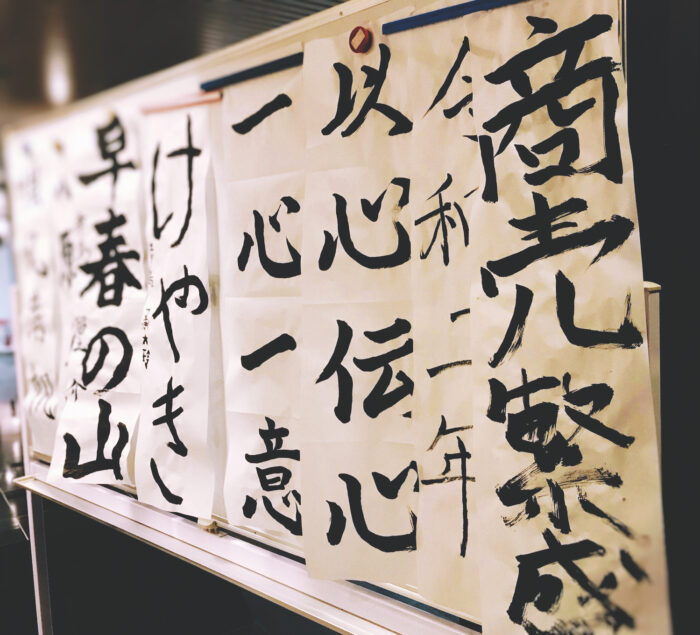 商売繁盛
令和二年
以心伝心
一心一意
けやき
早春の山